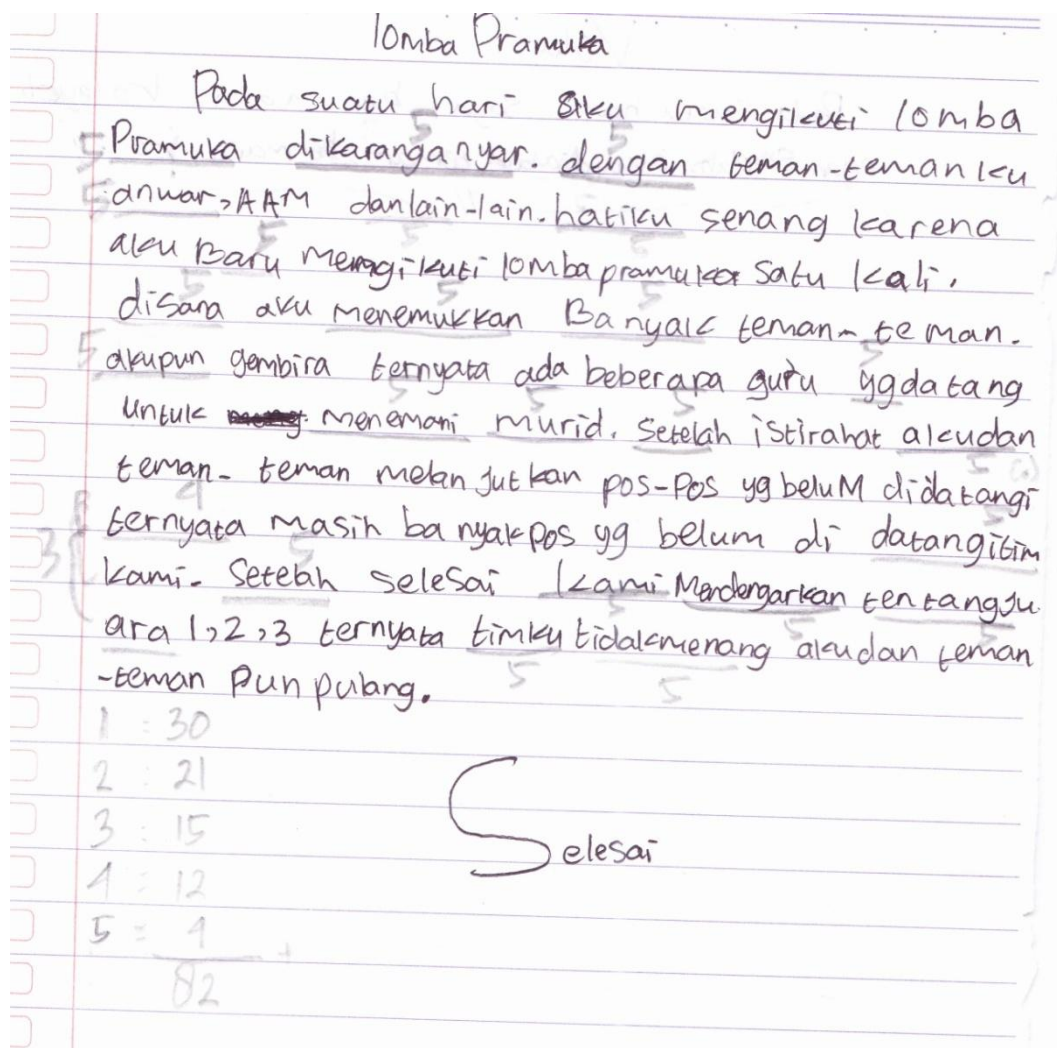 lomba Pramuka
Pada suatu hari aku mengikuti lomba
Pramuka dikaranganyar. dengan teman-temanku
anwar, AAM danlain-lain. hatiku senang karena
aku Baru mengikuti lomba pramuka satu kali.
disana aku menemukkan Banyak teman-teman.
akupun gembira ternyata ada beberapa guru ygdatang
untuk menemani murid. Setelah istirahat akudan
teman-teman melanjutkan pos-Pos yg beluM didatangi
ternyata masih banyakpos yg belum di datangitim
kami. Setelah selesai kami Mendengarkan tentangju
ara 1,2,3 ternyata timku tidakmenang akudan teman
-teman Pun pulang.
1 : 30
2 : 21
3 : 15
4 : 12
5 : 4
+
82
Selesai